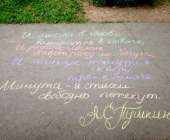 И мысли в голове
волнуются в отваге,
И рифмы легкие
навстречу им бегут,
И пальцы просятся
к перу,
перо к бумаге
Минута - и стихи
свободно потекут.
А.С.Пушкин